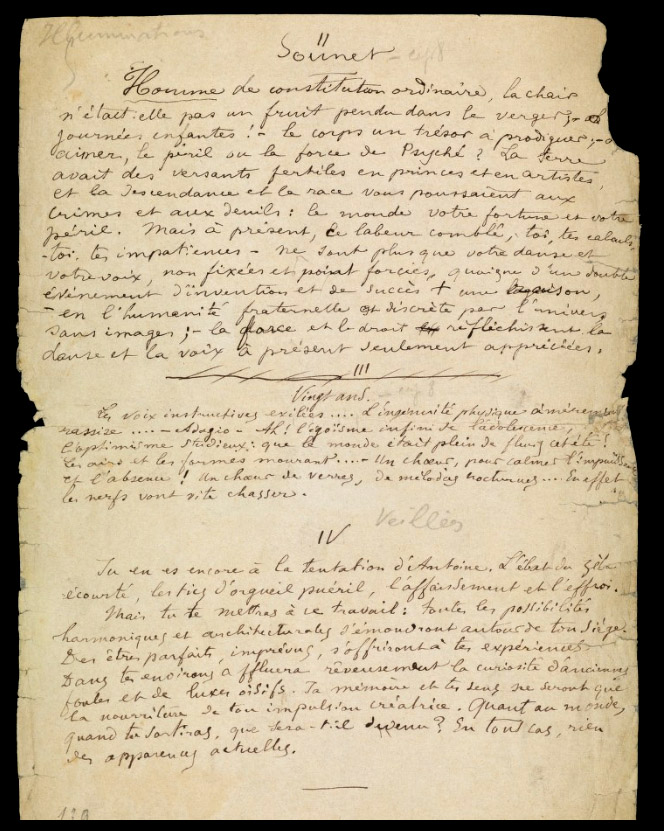 Illuminations
II
Sonnet
Homme de constitution ordinaire, la chair
n'était-elle pas un fruit pendu dans le verger; - ô
journées enfantes! - le corps un trésor à prodiguer; - ô
aimer, le péril ou la force de Psyché? La terre
avait des versants fertiles en princes et en artistes,
et la descendance et la race vous poussaient aux
crimes et aux deuils: le monde votre fortune et votre
péril. Mais à présent, ce labeur comblé, - toi, tes calculs,
- toi, tes impatiences - ne sont plus que votre danse et
votre voix, non fixées et point forcées, quoique d'un double
évènement d'invention et de succès + une raison,
- en l'humanité fraternelle et discrète par l'univers
sans images; - la force et le droit réfléchissent la
danse et la voix à présent seulement appréciées.
III
Vingt ans.
Les voix instructives exilées.... L'ingénuité physique amèrement
rassise.... - Adagio - Ah! l'égoïsme infini de l'adolescence,
l'optimisme studieux: que le monde était plein de fleurs cet été!
Les airs et les formes mourant.... - Un chœur, pour calmer l'impuissance
et l'absence! Un chœur de verres, de mélodies nocturnes... En effet
les nerfs vont vite chasser.
Veillées
IV
Tu en es encore à la tentation d'Antoine. L'ébat du zèle
écourté, les tics d'orgueil puéril, l'affaissement et l'effroi.
Mais tu te mettras à ce travail: toutes les possibilités
harmoniques et architecturales s'émouvront autour de ton siège.
Des êtres parfaits, imprévus, s'offriront à tes expériences.
Dans tes environs affluera rêveusement la curiosité d'anciennes
foules et de luxes oisifs. Ta mémoire et tes sens ne seront que
la nourriture de ton impulsion créatrice. Quant au monde,
quand tu sortiras, que sera-t-il devenu? En tout cas, rien
des apparences actuelles.